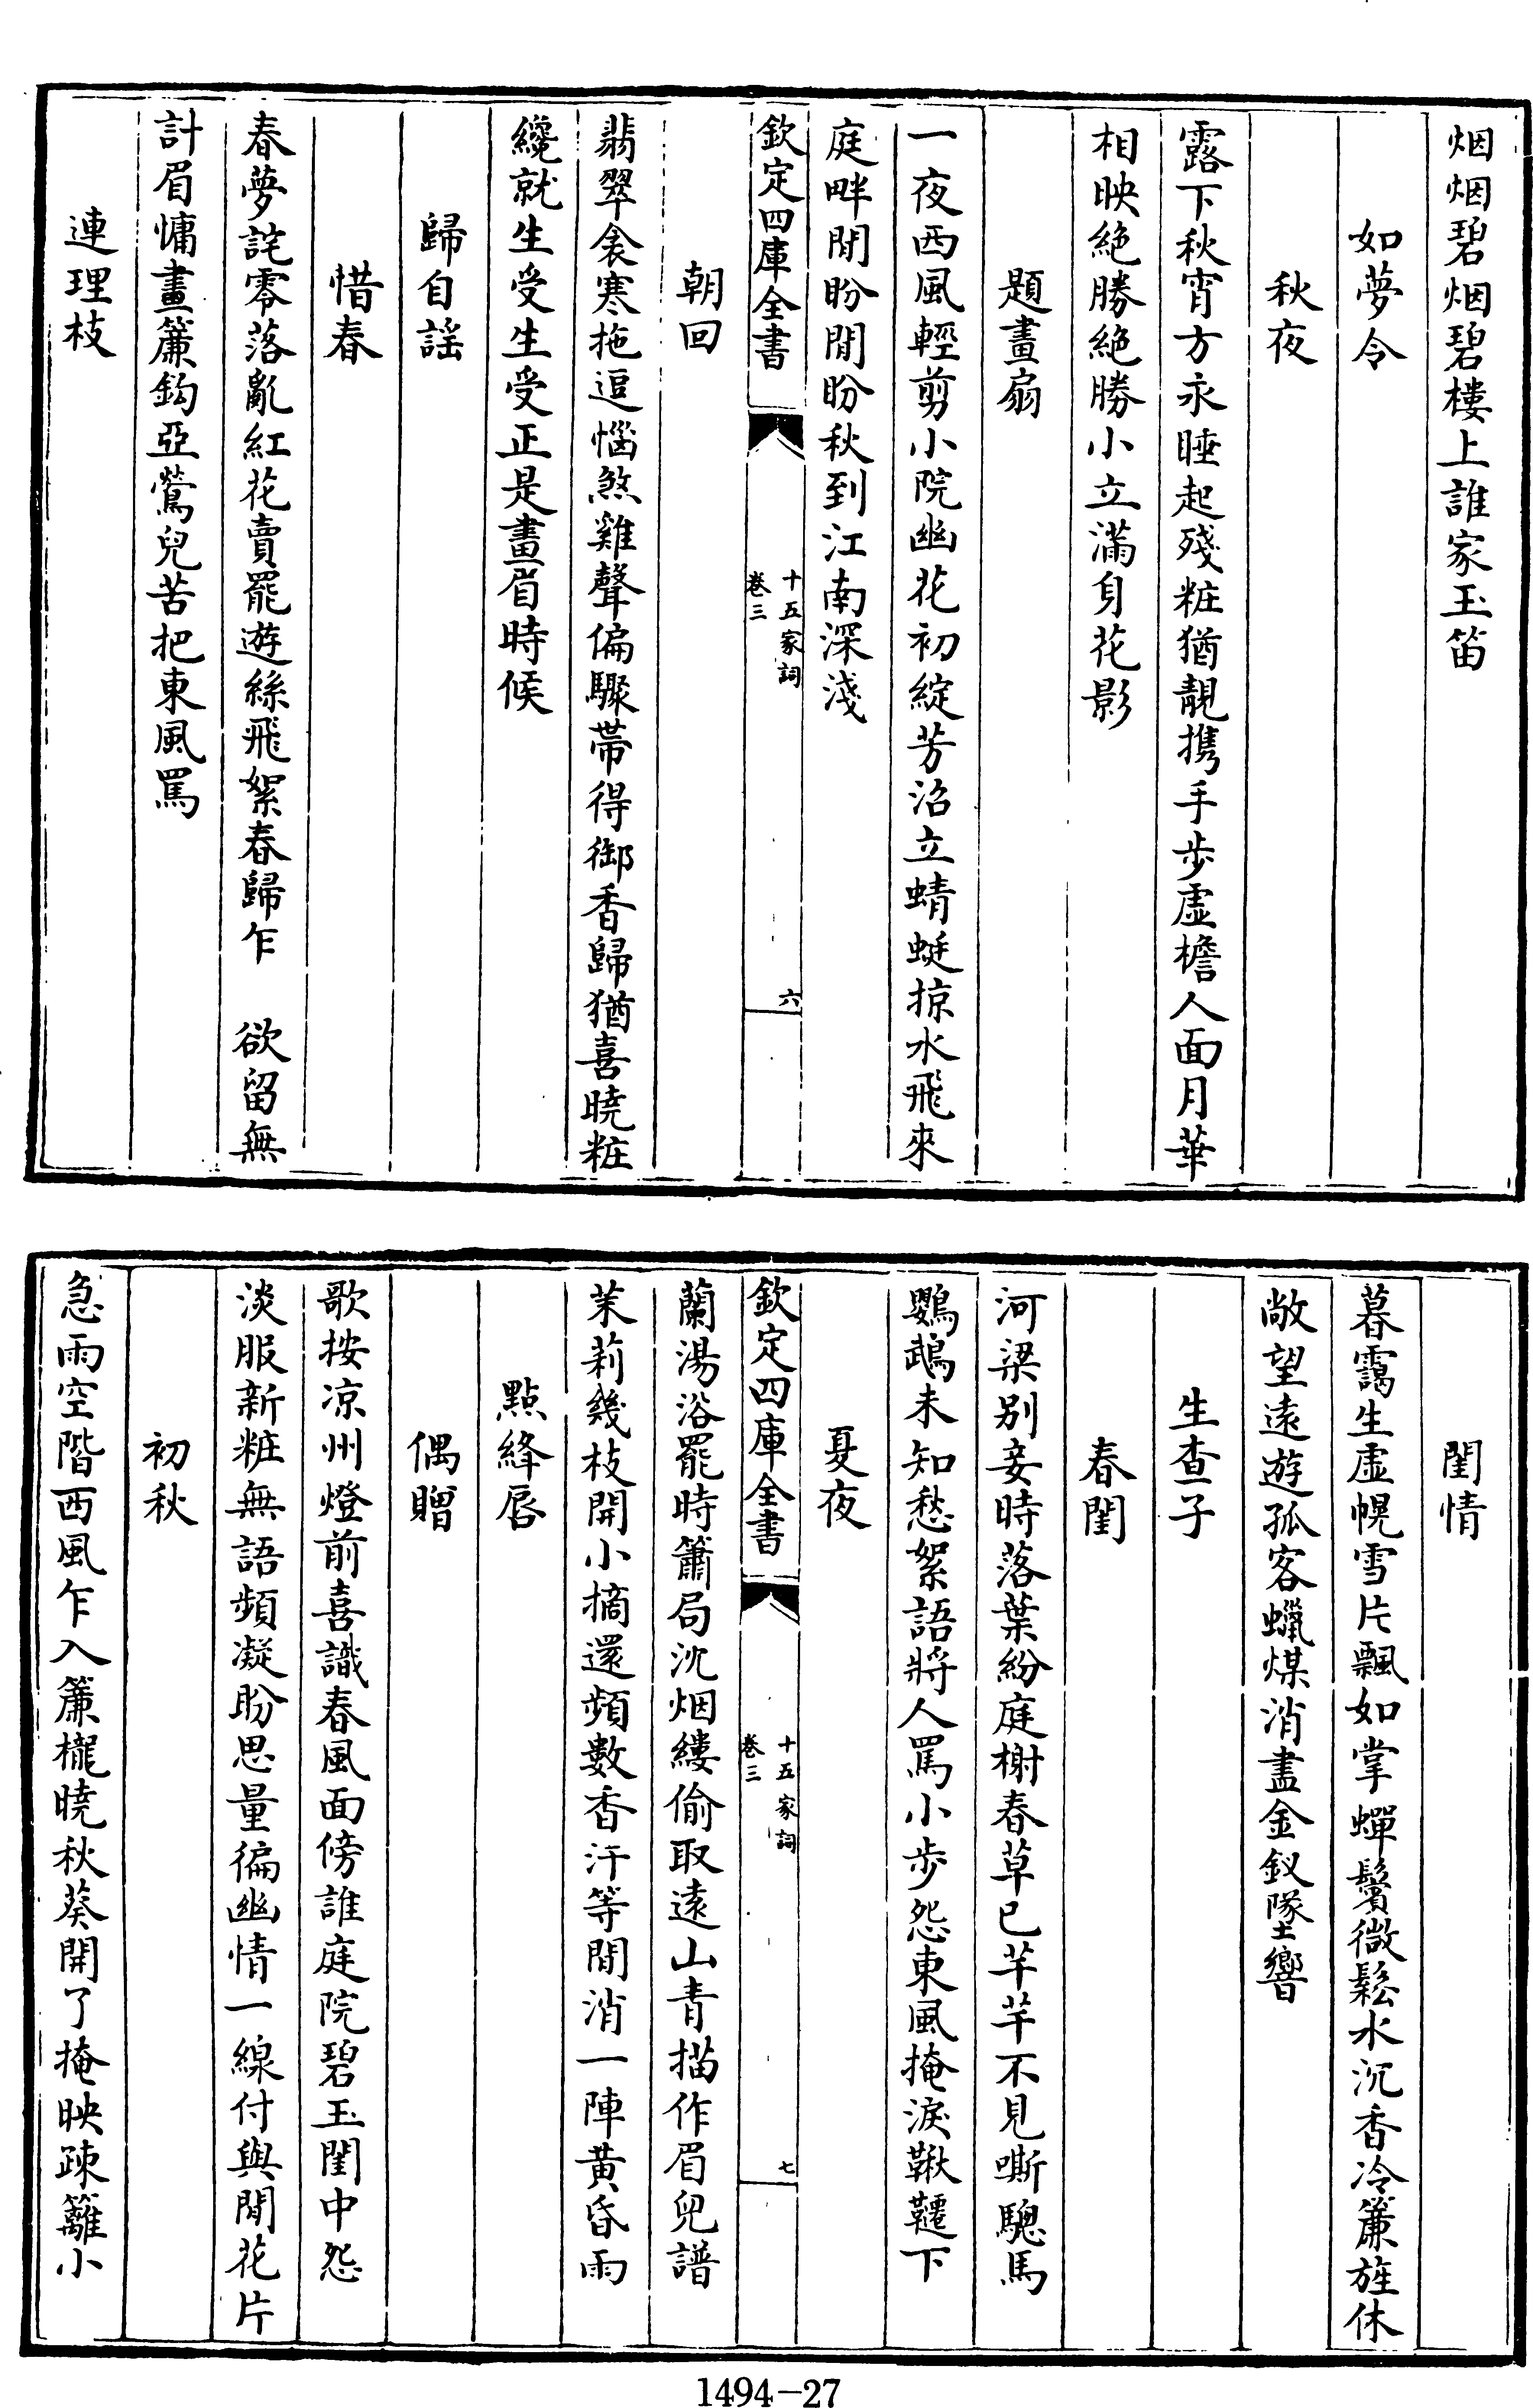 烟烟碧烟碧樓上誰家玉笛
如夢令
秋夜
露下秋宵方永睡起殘粧猶靚携手步虛檐人面月華
相映絶勝絶勝小立滿身花影
題畫扇
一夜西風輕剪小院幽花初綻芳沼立蜻蜓掠水飛來
庭畔閒盼閒盼秋到江南深淺
欽定四庫全書
十五家詞
卷三
六
朝回
翡翠衾寒拖逗惱煞雞聲偏驟帶得御香歸猶喜曉粧
纔就生受生受正是畫眉時候
歸自謡
惜春
春夢詫零落亂紅花賣罷遊絲飛絮春歸乍　欲留無
計眉慵畫簾鈎亞鶯兒苦把東風罵
連理枝
閨情
暮靄生虛幌雪片飄如掌蟬鬢微鬆水沉香冷簾旌休
敞望遠遊孤客蠟煤消盡金釵墜響
生查子
春閨
河梁别妾時落葉紛庭榭春草已芊芊不見嘶驄馬
鸚鵡未知愁絮語將人罵小步怨東風掩淚鞦韆下
夏夜
欽定四庫全書
十五家詞
卷三
七
蘭湯浴罷時篝局沈烟縷偷取遠山青描作眉兒譜
茉莉幾枝開小摘還頻數香汗等閒消一陣黃昏雨
點絳唇
偶贈
歌按凉州燈前喜識春風面傍誰庭院碧玉閨中怨
淡服新粧無語頻凝盼思量徧幽情一線付與閒花片
初秋
急雨空階西風乍入簾櫳曉秋葵開了掩映疎籬小
1494—27